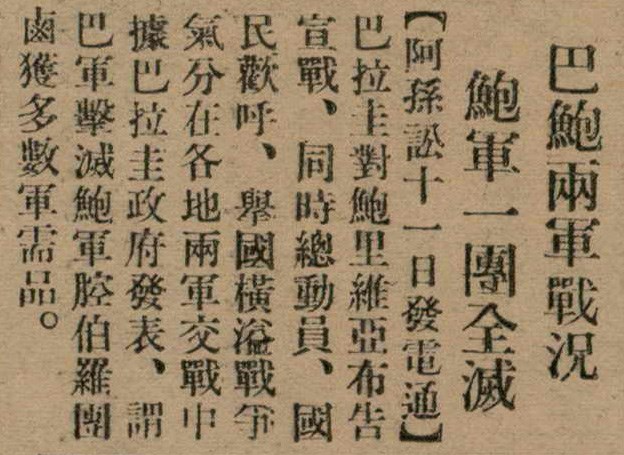 巴鮑兩軍戰况
鮑軍一團全滅
【阿孫訟十一日發電通】
巴拉圭對鮑里維亞布告
宣戰、同時總動員、國
民歡呼、舉國橫溢戰爭
氣分在各地兩軍交戰中
據巴拉圭政府發表、謂
巴軍擊滅鮑軍腔伯羅團
鹵獲多數軍需品。